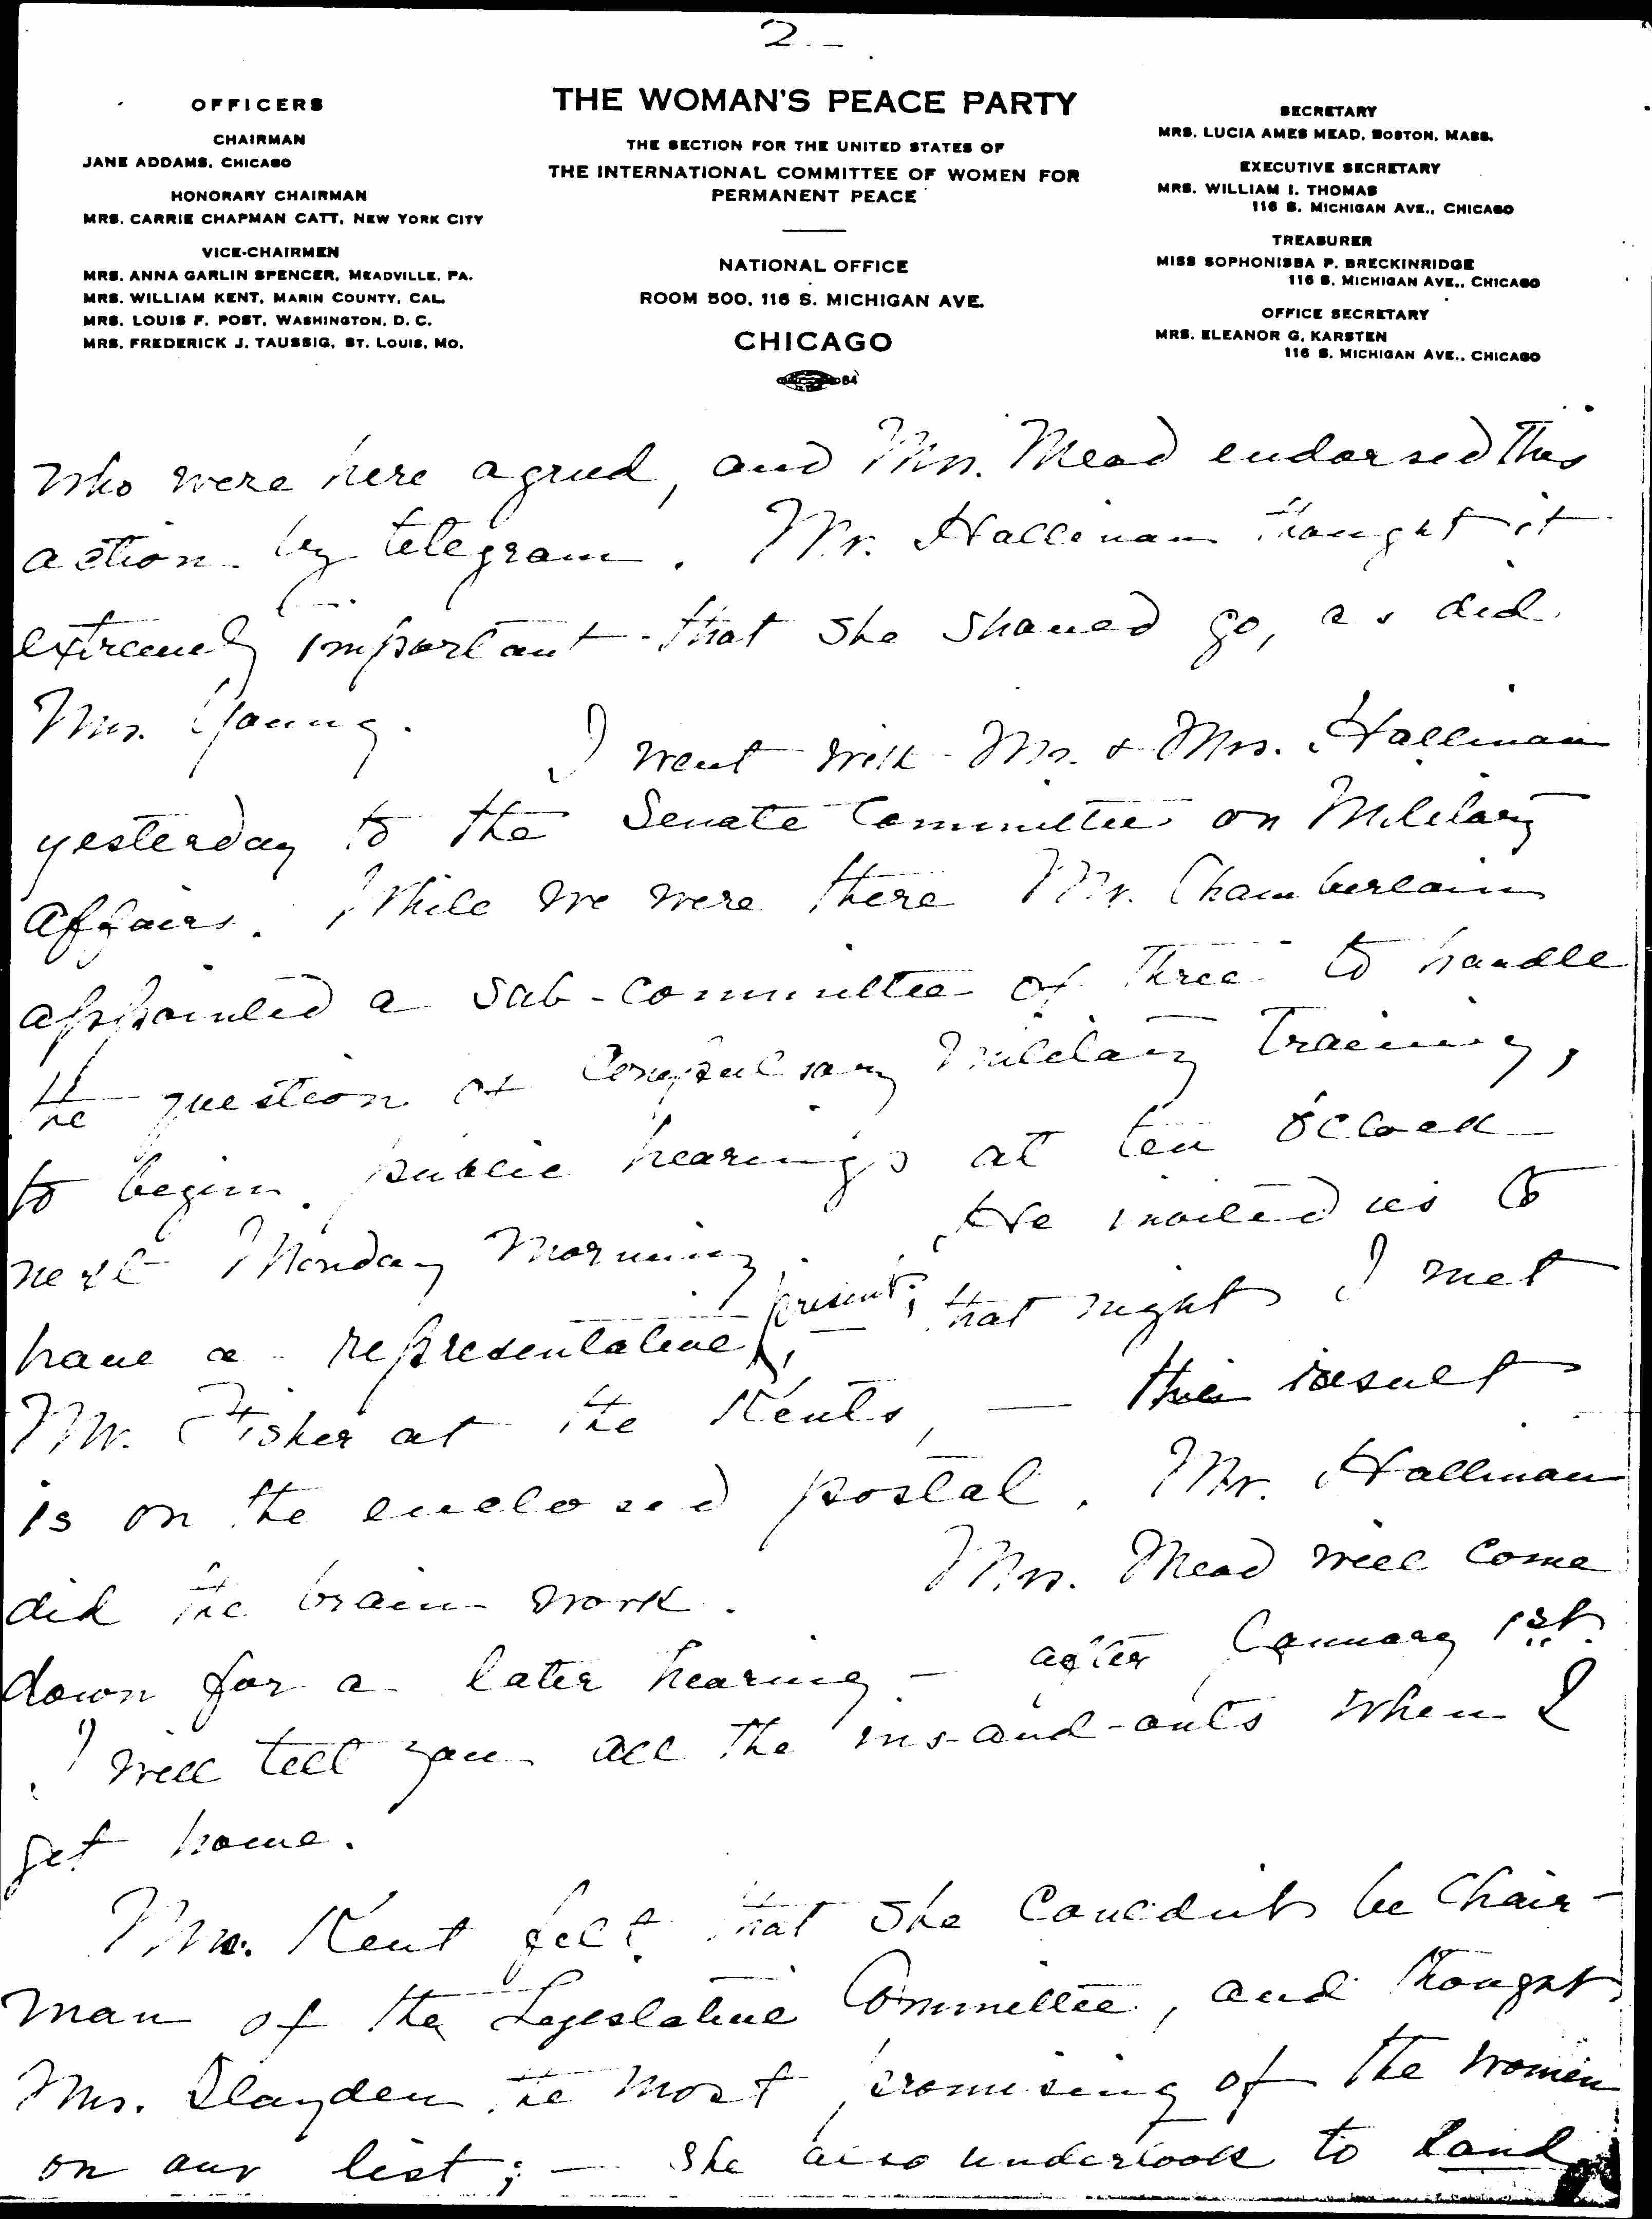 2.—
OFFICERS
CHAIRMAN
JANE ADDAMS, CHICAGO
HONORARY CHAIRMAN
MRS. CARRIE CHAPMAN CATT, NEW YORK CITY
VICE-CHAIRMEN
MRS. ANNA GARLIN SPENCER, MEADVILLE, PA.
MRS. WILLIAM KENT, MARIN COUNTY, CAL.
MRS. LOUIS F. POST, WASHINGTON, D. C.
MRS. FREDERICK J. TAUSSIG, ST. LOUIS, MO.
THE WOMAN'S PEACE PARTY
THE SECTION FOR THE UNITED STATES OF
THE INTERNATIONAL COMMITTEE OF WOMEN FOR
PERMANENT PEACE
NATIONAL OFFICE
ROOM 500, 116 S. MICHIGAN AVE.
CHICAGO
84
SECRETARY
MRS. LUCIA AMES MEAD, BOSTON, MASS.
EXECUTIVE SECRETARY
MRS. WILLIAM I. THOMAS
116 S. MICHIGAN AVE., CHICAGO
TREASURER
MISS SOPHONISBA P. BRECKINRIDGE
116 S. MICHIGAN AVE., CHICAGO
OFFICE SECRETARY
MRS. ELEANOR G. KARSTEN
116 S. MICHIGAN AVE., CHICAGO
who were here agreed, and Mrs. Mead endorsed this
action by telegram. Mr. Hallinan thought it
extremely important that she should go, as did
Mrs. Young. I went with Mr. & Mrs. Hallinan
yesterday to the Senate Committee on Military
Affairs. While we were there Mr. Chamberlain
appointed a sub-committee of three to handle
the question of Compulsary Military Training,
to begin public hearings at ten o'clock
next Monday Morning. He invited us to
have a representative present; — that night I met
Mr. Fisher at the Kents, — the result
is on the enclosed postal. Mr. Hallinan
did the brain work. Mrs. Mead will come
down for a later hearing — after January 1st.
I will tell you all the ins-and-outs when I
get home.
Mrs. Kent felt that she couldn't be Chair-
man of the Legislative Committee, and thought
Mrs. Slayden the most promising of the women
on our list; — she also undertook to land